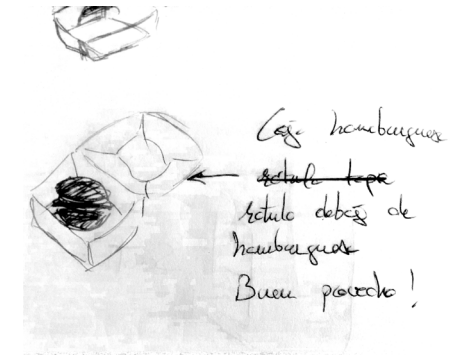 Caja hamburguesa
rótulo tapa
rótulo debajo de
hamburguesa
Buen provecho!